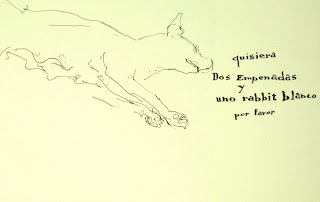 quisiera
Dos Empenadas
y
uno rabbit blanco
por favor